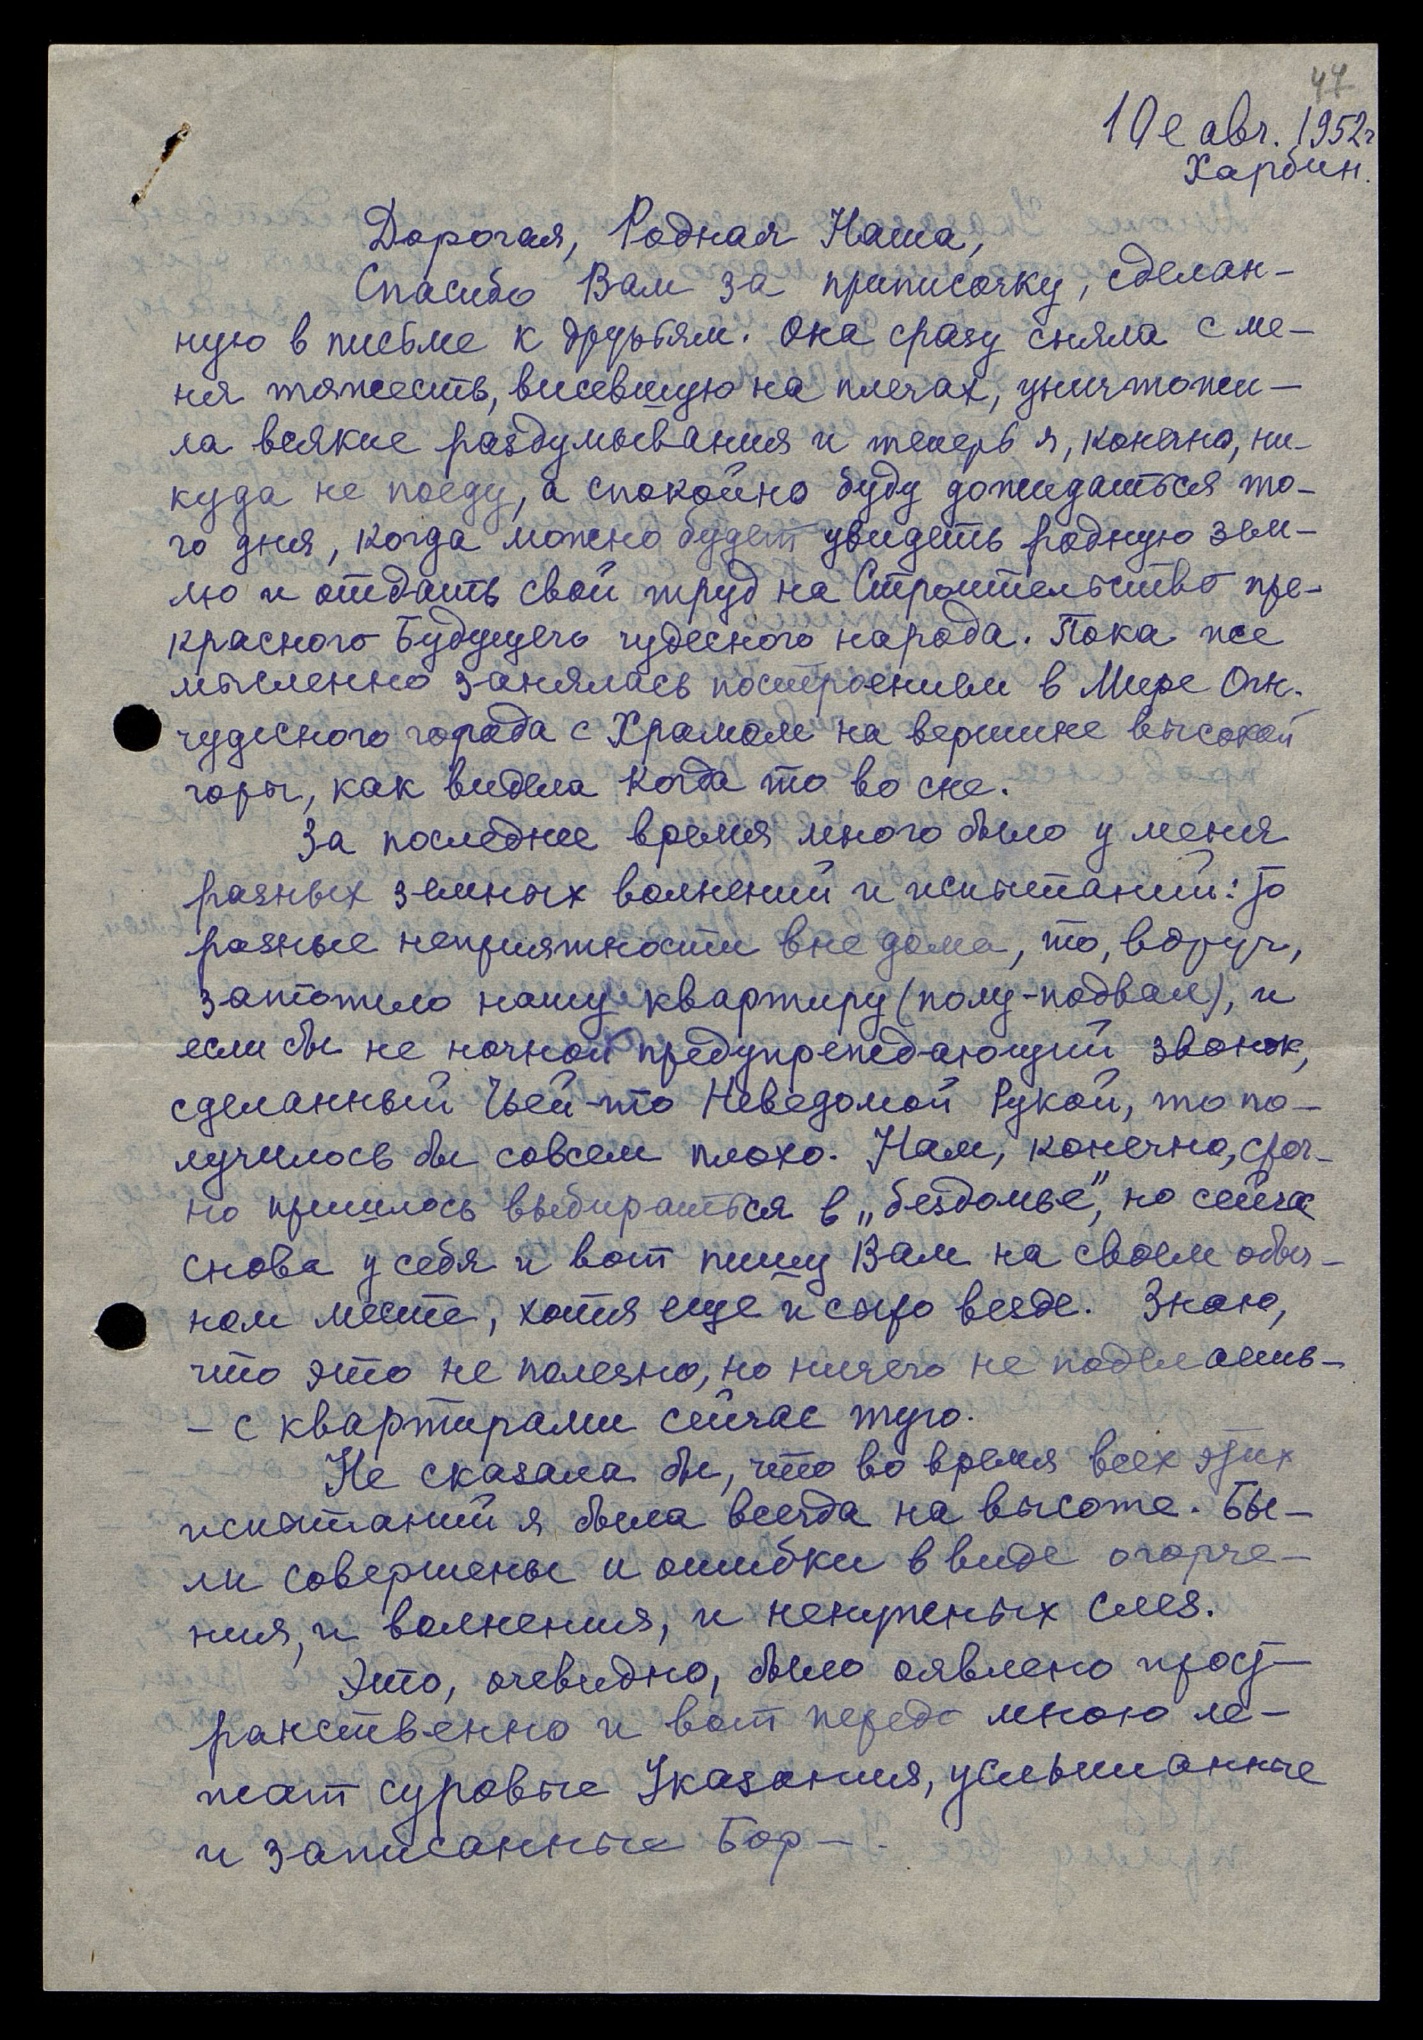 47
10е авг. 1952г
Харбин.
Дорогая, Родная Наша,
Спасибо Вам за приписочку, сделан-
ную в письме к друзьям. Она сразу сняла с ме-
ня тяжесть, висевшую на плечах, уничтожи-
ла всякие раздумывания и теперь я, конечно, ни-
куда не поеду, а спокойно буду дожидаться то-
го дня, когда можно будет увидеть родную зем-
лю и отдать свой труд на Строительство пре-
красного Будущего чудесного народа. Пока же
мысленно занялась построением в Мире Огн.
чудесного города с Храмом на вершине высокой
горы, как видела когда то во сне.
За последнее время много было у меня
разных земных волнений и испытаний: то
разные неприятности вне дома, то, вдруг,
затопило нашу квартиру (полу-подвал), и
если бы не ночной предупреждающий звонок,
сделанный Чьей-то Неведомой Рукой, то по-
лучилось бы совсем плохо. Нам, конечно, сроч-
но пришлось выбираться в „бездомье”, но сейчас
снова у себя и вот пишу Вам на своем обыч-
ном месте, хотя еще и сыро везде. Знаю,
что это не полезно, но ничего не поделаешь-
- с квартирами сейчас туго.
Не сказала бы, что во время всех этих
испытаний я была всегда на высоте. Бы-
ли совершены и ошибки в виде огорче-
ния, и волнения, и ненужных слез.
Это, очевидно, было оявлено прост-
ранственно и вот передо мною ле-
жат суровые Указания, услышанные
и записанные Бор-.